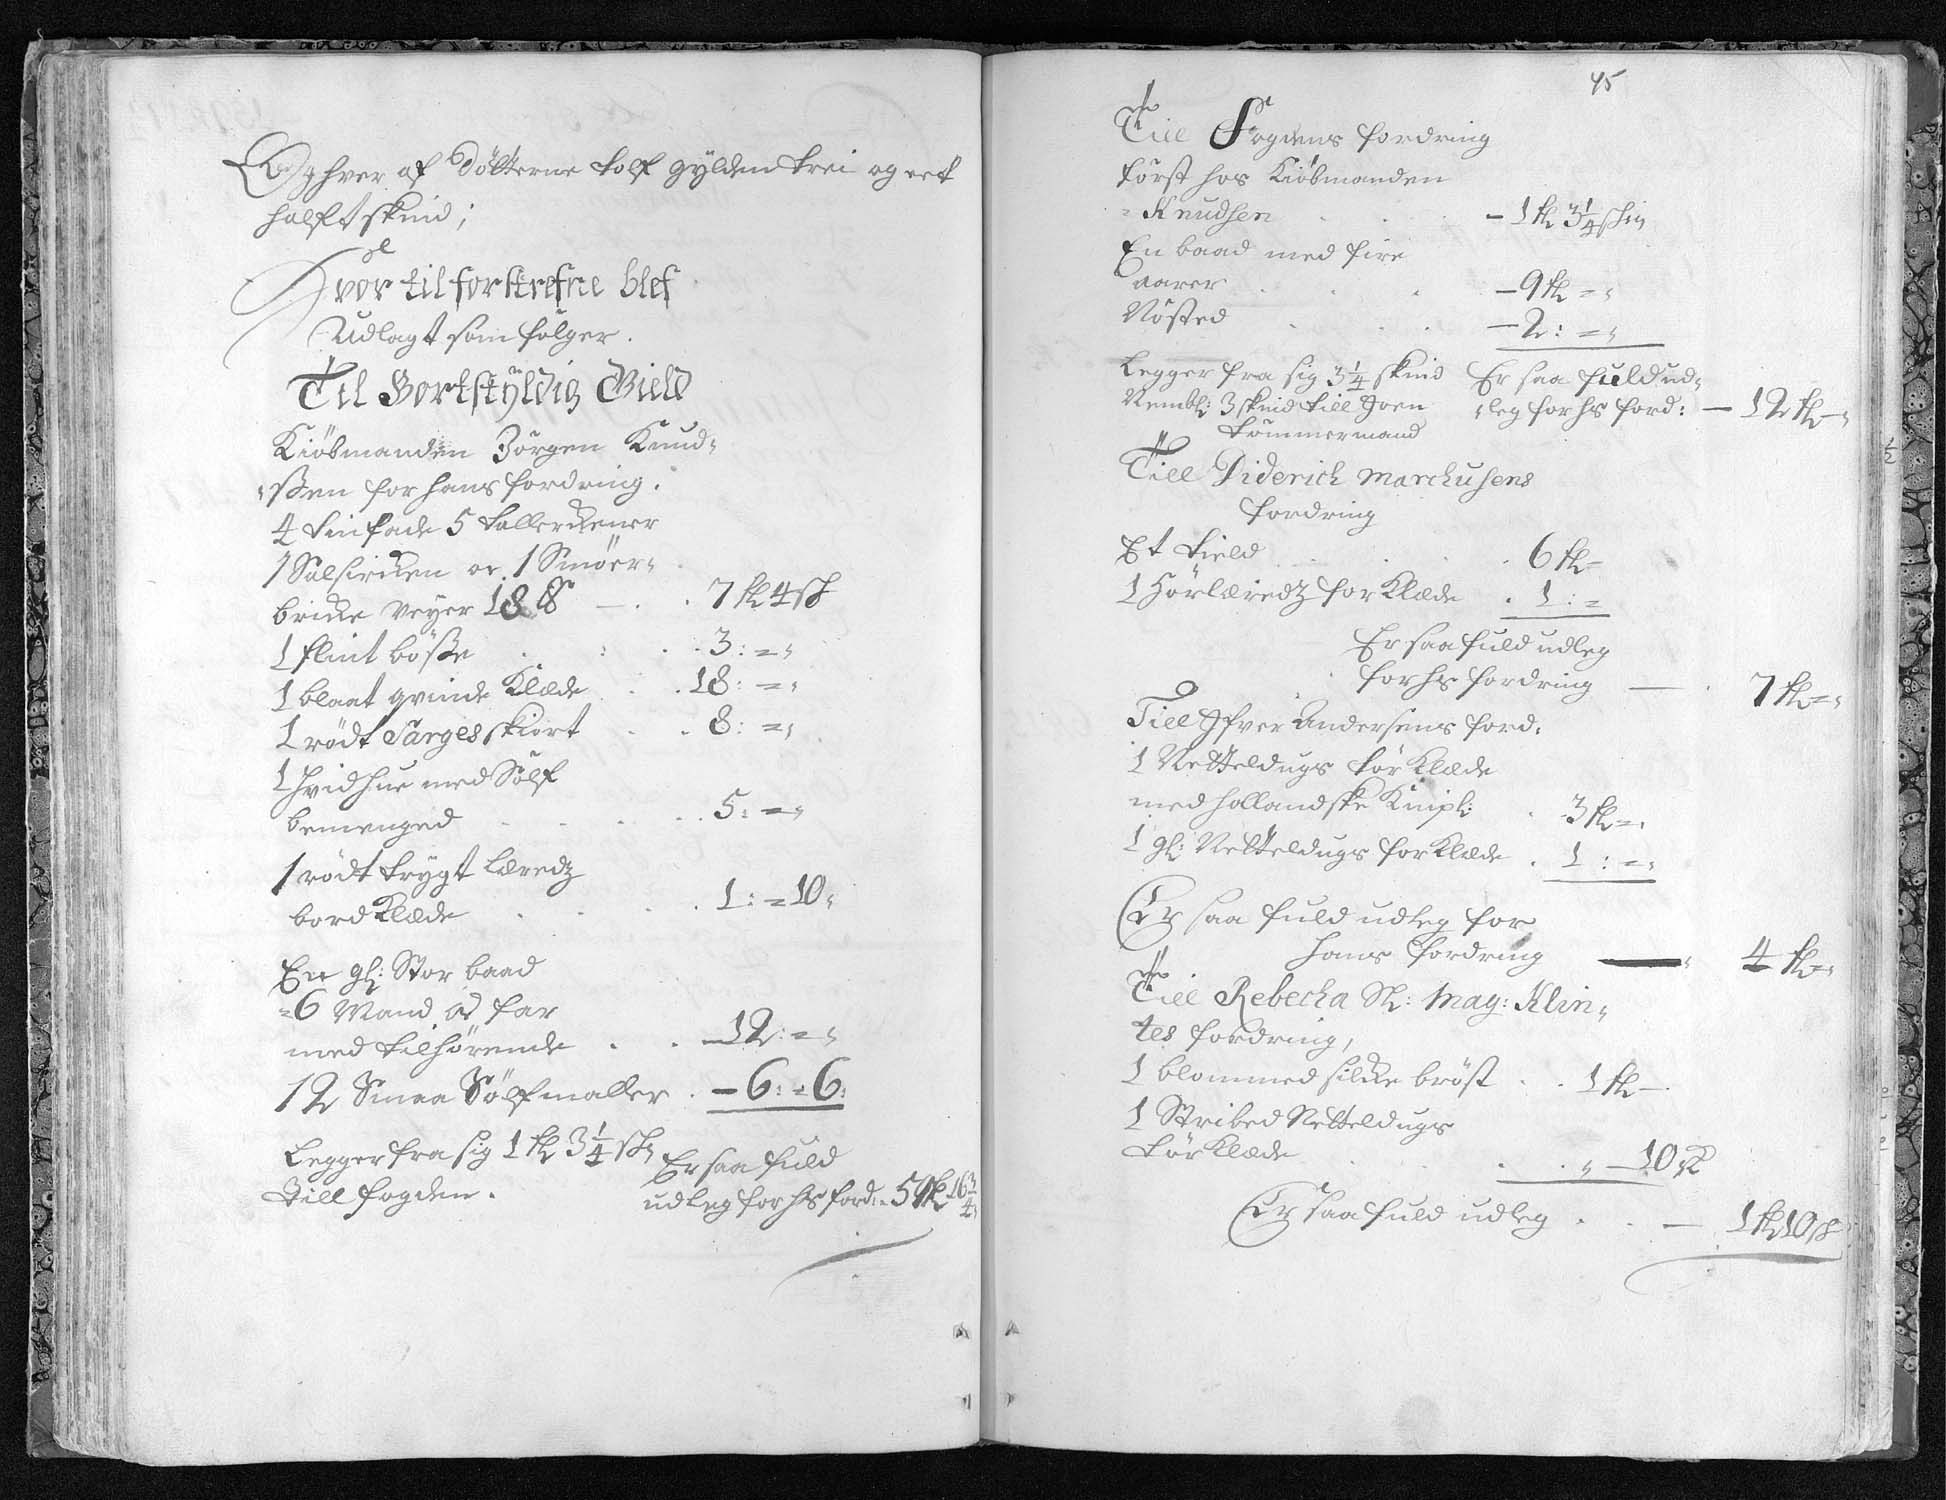 Og hver af Dötterne tolf gylden trei og eet
halft skind;
Hvor til forskrefne blef
Udlagt som fölger.
Til Bortskÿldig Gield
Kiöbmanden Jörgen Knud-
ssen for hans fordring.
4 tinfade 5 tallerckener
1 Salsircken oc 1 Smöer-
bricke veyer 18 ℔ - . . 7 fl 4 sk
1 flint bösse . : . . 3: =
1 blaat qvinde Klæde . . 18: =
1 rödt Sarges skiört . . 8: =
1 hvid hue med Sölf
bemenged . . . . 5: =
1 rödt trygt Læredz
bord Klæde . . . 1: = 10
En gl: Stor baad
6 Mand
med tilhörende . . - 12: =
12 Smaa Sölfmaller . - 6: = 6:
Legger fra sig 1 fl 3 1/4 sk
till fogden.
Er saa fuld
udleg for hs ford: - 59 fl 16 3/4
45
Till Fogdens fordring
först hos Kiöbmanden
Knudsen . . . - 1 fl 3 1/4 skin
En baad med fire
aarer . . . - 9 fl =
Nösted . . . - 2: =
Legger fra sig 3 1/4 skind
Nembl: 3 skind till Joen
tömmermand
Er saa fuld ud-
leg for hs ford: - 12 fl -
Till Diderich Marchusens
fordring
Et tield . . . . 6 fl -
1 Hörlæredz forklæde . 1: =
Er saa fuld udleg
for hs fordring - . 7 fl =
Till Ifver Andersens ford:
1 Netteldugs törklæde
med hollandske Knipl: . 3 fl =
1 gl: Netteldugs forklæde . 1: =
Er saa fuld udleg for
hans fordring - 4 fl =
Till Rebecha Sl: Mag: Klin-
tes fordring,
1 blommed silcke bröst . . 1 fl -
1 Stribed Netteldugs
törklæde . . . - 10 sk
Er saa fuld udleg . . - 1 fl 10 sk